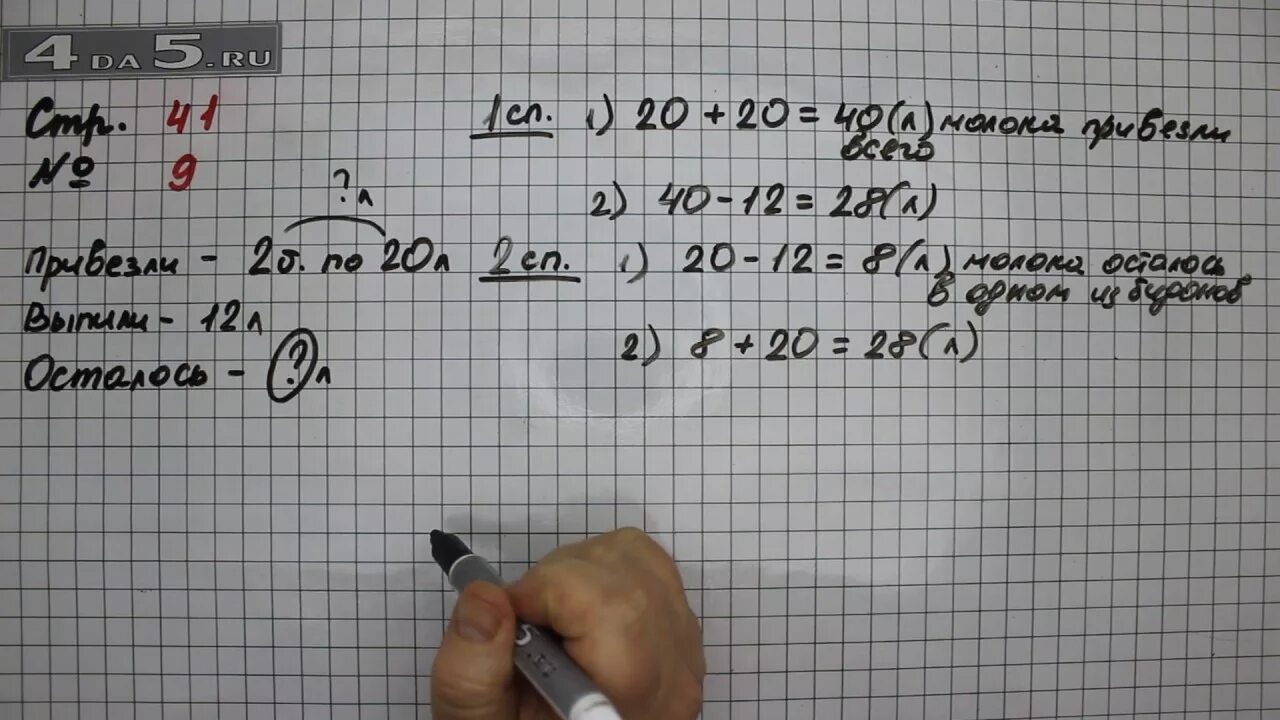 4DA5.RU
Стр. 41
№ 9
?л
Привезли - 2б. по 20л
Выпили - 12л
Осталось - ?л
1сп. 1) 20 + 20 = 40(л) молока привезли
всего
2) 40 - 12 = 28(л)
2сп. 1) 20 - 12 = 8(л) молока осталось
в одном из бидонов
2) 8 + 20 = 28(л)